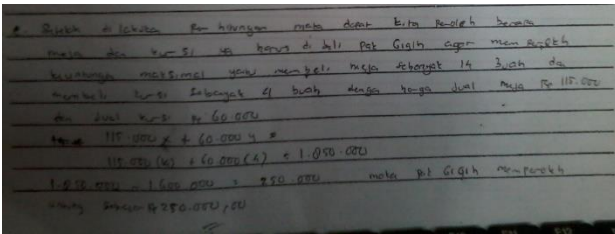 Setelah di lakukan Per hitungan maka dapat kita Peroleh berapa
meja dan kursi yg harus di beli Pak Gigih agar mem Peroleh
keuntungan maksimal yaitu membeli meja sebanyak 14 buah dan
membeli kursi sebanyak 4 buah dengan harga jual meja Rp 115.000
dan jual kursi Rp 60.000
115.000 x + 60.000 y =
115.000 (14) + 60.000 (4) = 1.850.000
1.850.000 - 1.600.000 = 250.000 maka Pak Gigih memperoleh
sebesar Rp 250.000,00